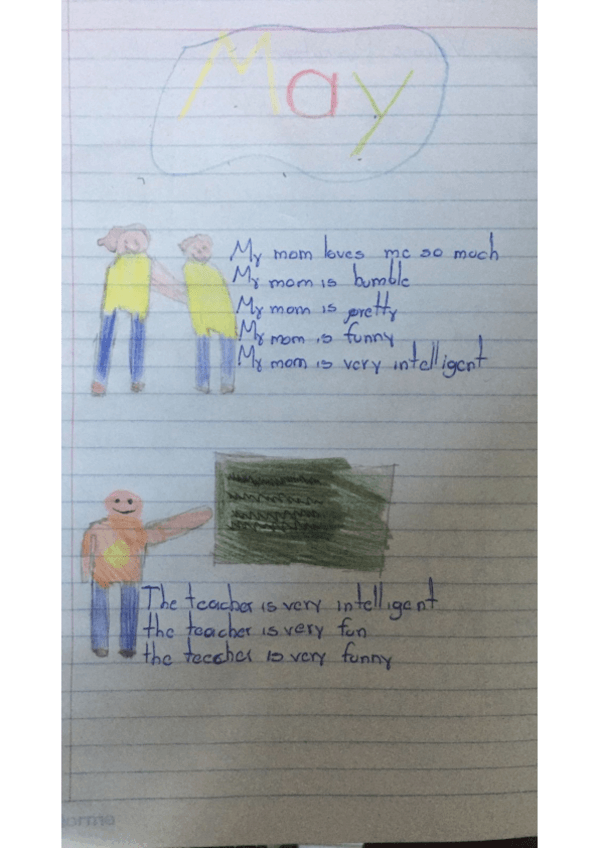 May
My mom loves me so much
My mom is humble
My mom is pretty
My mom is funny
My mom is very intelligent
The teacher is very intelligent
the teacher is very fun
the teacher is very funny